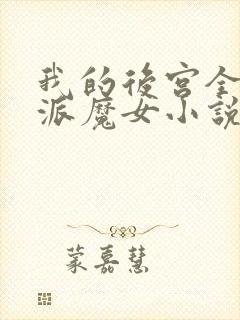 我的後宮全
派魔女小說
蒙嘉慧